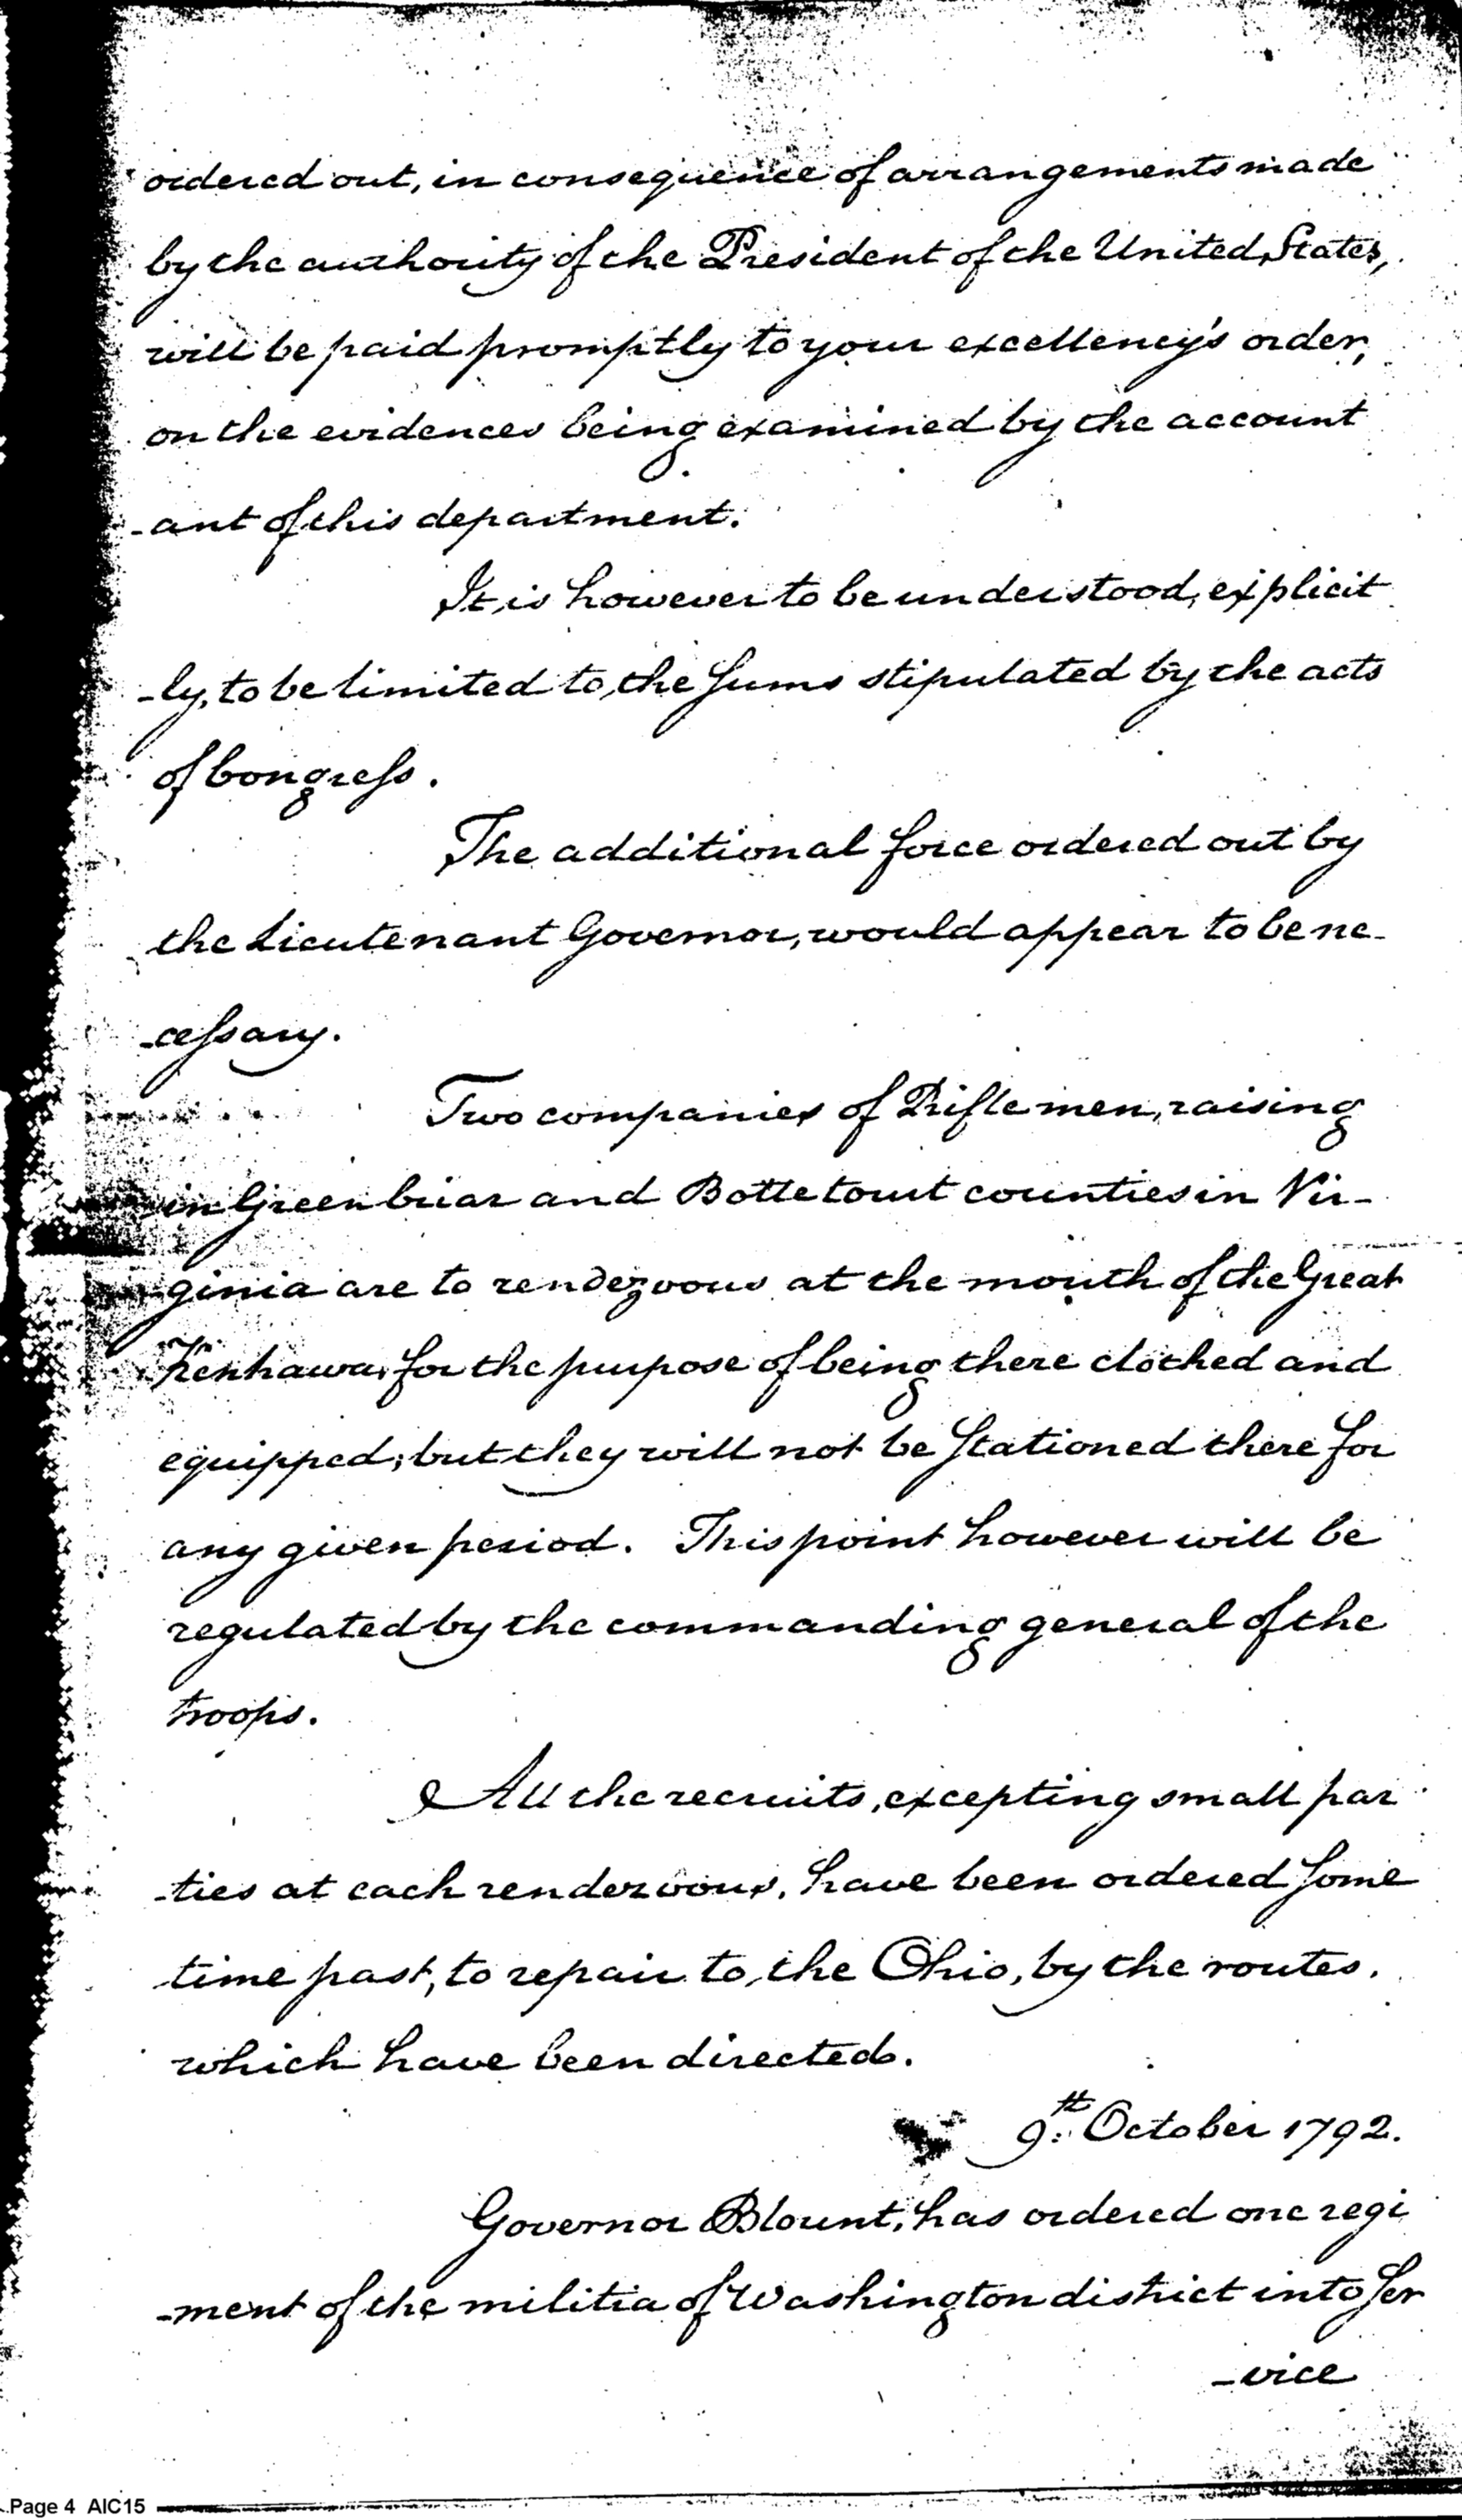 ordered out, in consequence of arrangements made
by the authority of the President of the United States,
will be paid promptly to your excellency's order,
on the evidences being examined by the account
-ant of this department.
It is however to be understood, explicit
-ly, to be limited to, the sums stipulated by the acts
of Congress.
The additional force ordered out by
the Lieutenant Governor, would appear to be ne-
-cessary.
Two companies of Riflemen, raising
in Greenbriar and Bottetourt counties in Vir-
-ginia are to rendezvous at the mouth of the Great
Kenhawa, for the purpose of being there clothed and
equipped; but they will not be stationed there for
any given period. This point however will be
regulated by the commanding general of the
troops.
All the recruits, excepting small par
-ties at each rendezvous, have been ordered some
time past, to repair to, the Ohio, by the routes,
which have been directed.
9th October 1792.
Governor Blount, has ordered one regi
-ment of the militia of Washington district into ser
-vice
Page 4 AIC15